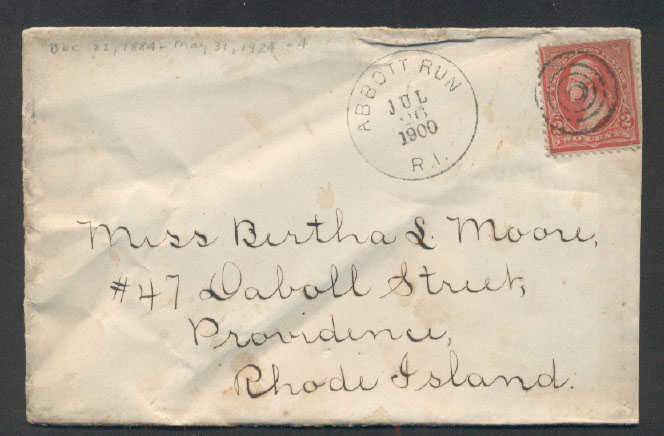 Dec 22, 1884 - May 31, 1924 - 4
ABBOTT RUN
JUL
26
1900
R.I.
2 2
TWO CENTS
Miss Bertha L. Moore,
#47 Daboll Street,
Providence,
Rhode Island.